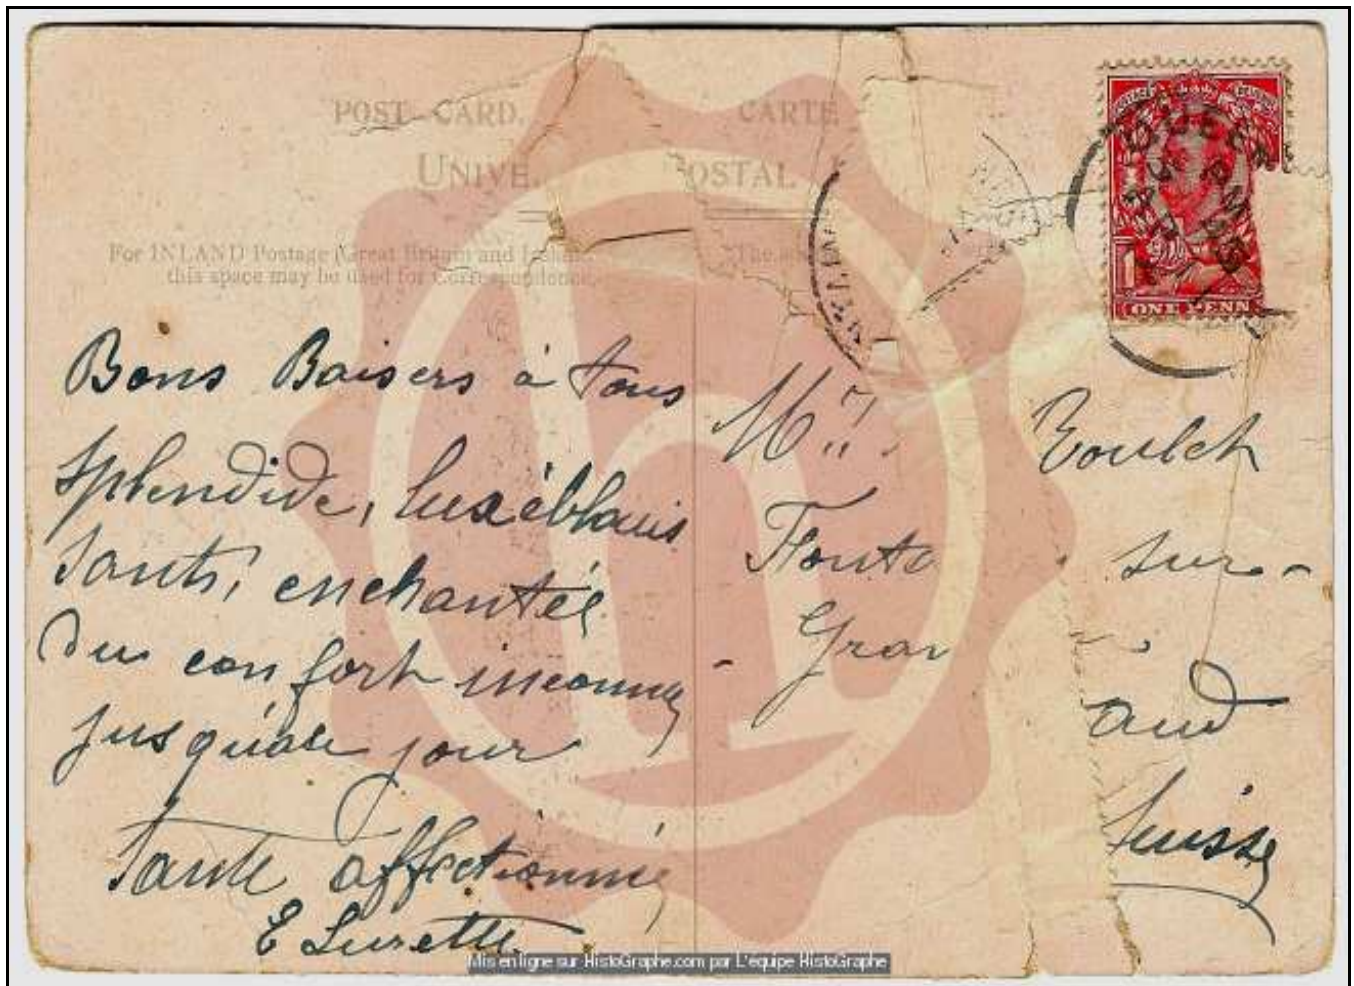 POST CARD. CARTE
UNIVE. OSTAL
For INLAND Postage (Great Britain and Irelan
this space may be used for Correspondence.
"The a
ONE PENN
Bons Baisers à tous
splendide, luxe éblouis
sants, enchantée
du confort inconnu
jusqu'à ce jour
Tante affectionnée
E Surette
Mlle.
Font sur-
Gran
aud
Suisse
Mis en ligne sur HistoGraphe.com par L'équipe HistoGraphe